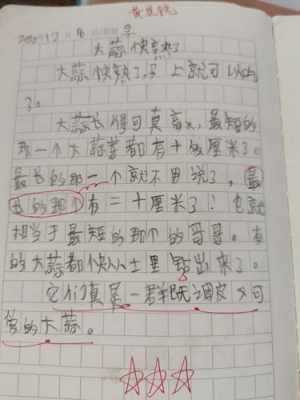 大蒜快熟了
大蒜快熟了,马上就可以吃
了。
大蒜长得可真高大,最短的
那一个大蒜苗都有十几厘米了。
最长的那一个就不用说了,最
长的那个有二十厘米了!也就
相当于最短的那个的哥哥。有
的大蒜都快从土里钻出来了。
它们真是一群既调皮又可
爱的大蒜。